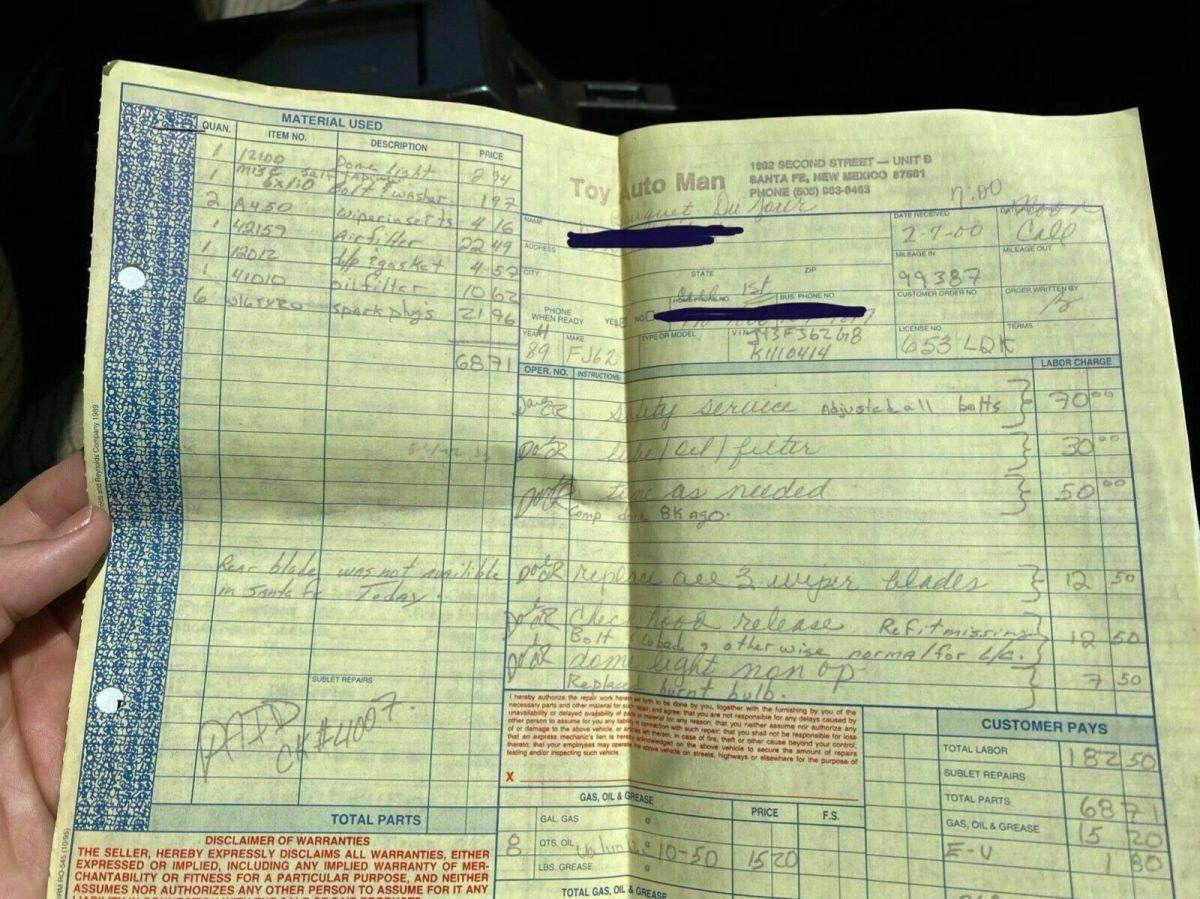 MATERIAL USED
QUAN. ITEM NO. DESCRIPTION PRICE
1 12100 Dome light 2 94
1 misc 6x1.0 bolt & washer 1 97
2 A450 wiper inserts 4 16
1 42159 Air filter 22 49
1 12012 d/p gasket 4 57
1 41010 oil filter 10 62
6 spark plugs 21 96
68 71
Rear blade was not availible
in Santa Fe Today.
SUBLET REPAIRS
PAID
CK #4007.
TOTAL PARTS
DISCLAIMER OF WARRANTIES
THE SELLER, HEREBY EXPRESSLY DISCLAIMS ALL WARRANTIES, EITHER
EXPRESSED OR IMPLIED, INCLUDING ANY IMPLIED WARRANTY OF MER-
CHANTABILITY OR FITNESS FOR A PARTICULAR PURPOSE, AND NEITHER
ASSUMES NOR AUTHORIZES ANY OTHER PERSON TO ASSUME FOR IT ANY
Toy Auto Man
1802 SECOND STREET — UNIT B
SANTA FE, NEW MEXICO 87501
PHONE (505) 983-8463
NAME
Du Jour
DATE RECEIVED
2-7-00
Call
ADDRESS
MILEAGE IN
99387
MILEAGE OUT
CITY STATE ZIP
1st
HOME PHONE NO. BUS. PHONE NO.
CUSTOMER ORDER NO.
ORDER WRITTEN BY
PHONE WHEN READY YES NO
YEAR 89
MAKE FJ62
TYPE OR MODEL
V.I.N. JT3FJ62G8
K1110414
LICENSE NO. 653 LDK
TERMS
OPER. NO. INSTRUCTIONS LABOR CHARGE
Safety service Adjusted all bolts 70 00
lube/oil/filter 30 00
tune as needed 50 00
Comp done 8K ago.
replace all 3 wiper blades 12 50
Check hood release Refit missing 12 50
Bolt & otherwise normal for
dome light non op 7 50
Replaced burnt bulb.
I hereby authorize the repair work herein set forth to be done by you, together with the furnishing by you of the
necessary parts and other material for such repair, and agree: that you are not responsible for any delays caused by
unavailability or delayed availability of parts or material for any reason; that you neither assume nor authorize any
other person to assume for you any liability in connection with such repair; that you shall not be responsible for loss
of or damage to the above vehicle, or articles left therein, in case of fire, theft or other cause beyond your control;
that an express mechanic's lien is hereby acknowledged on the above vehicle to secure the amount of repairs
thereto; that your employees may operate the above vehicle on streets, highways or elsewhere for the purpose of
testing and/or inspecting such vehicle.
X
GAS, OIL & GREASE PRICE F.S.
GAL. GAS @
8 QTS. OIL @ 10-50 15 20
LBS. GREASE @
TOTAL GAS, OIL & GREASE
CUSTOMER PAYS
TOTAL LABOR 182 50
SUBLET REPAIRS
TOTAL PARTS 68 71
GAS, OIL & GREASE 15 20
E-V 1 80